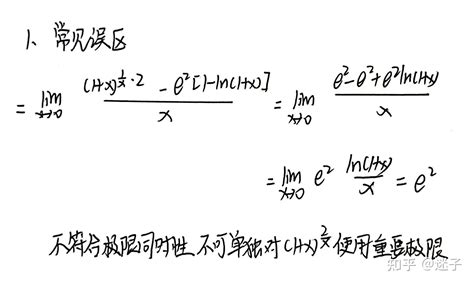 1、常见误区
= lim x→0 ((1+x)^(1/x·2) - e²[1-ln(1+x)])/x = lim x→0 (e²-e²+e²ln(1+x))/x
= lim x→0 e² ln(1+x)/x = e²
不符合极限同时性,不可单独对(1+x)^(2/x)使用重要极限
知乎 @迷子